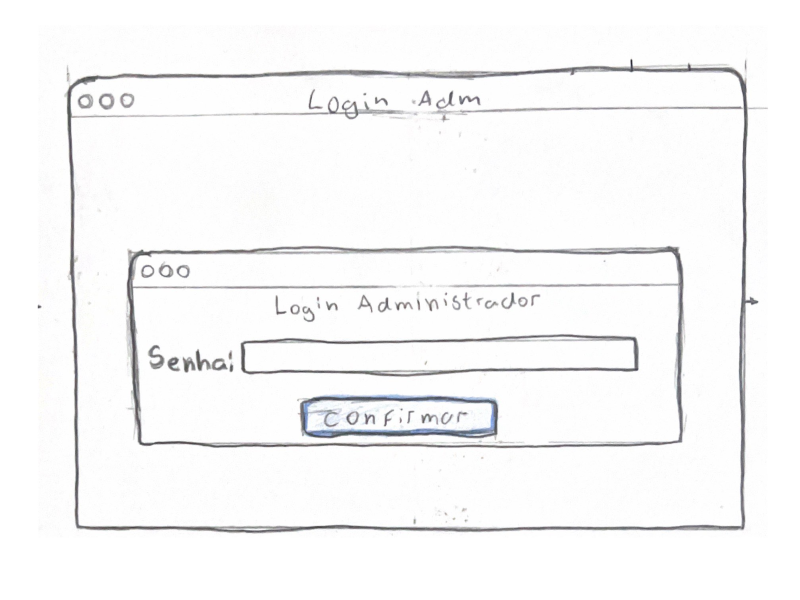 Login Adm
Login Administrador
Senha:
Confirmar